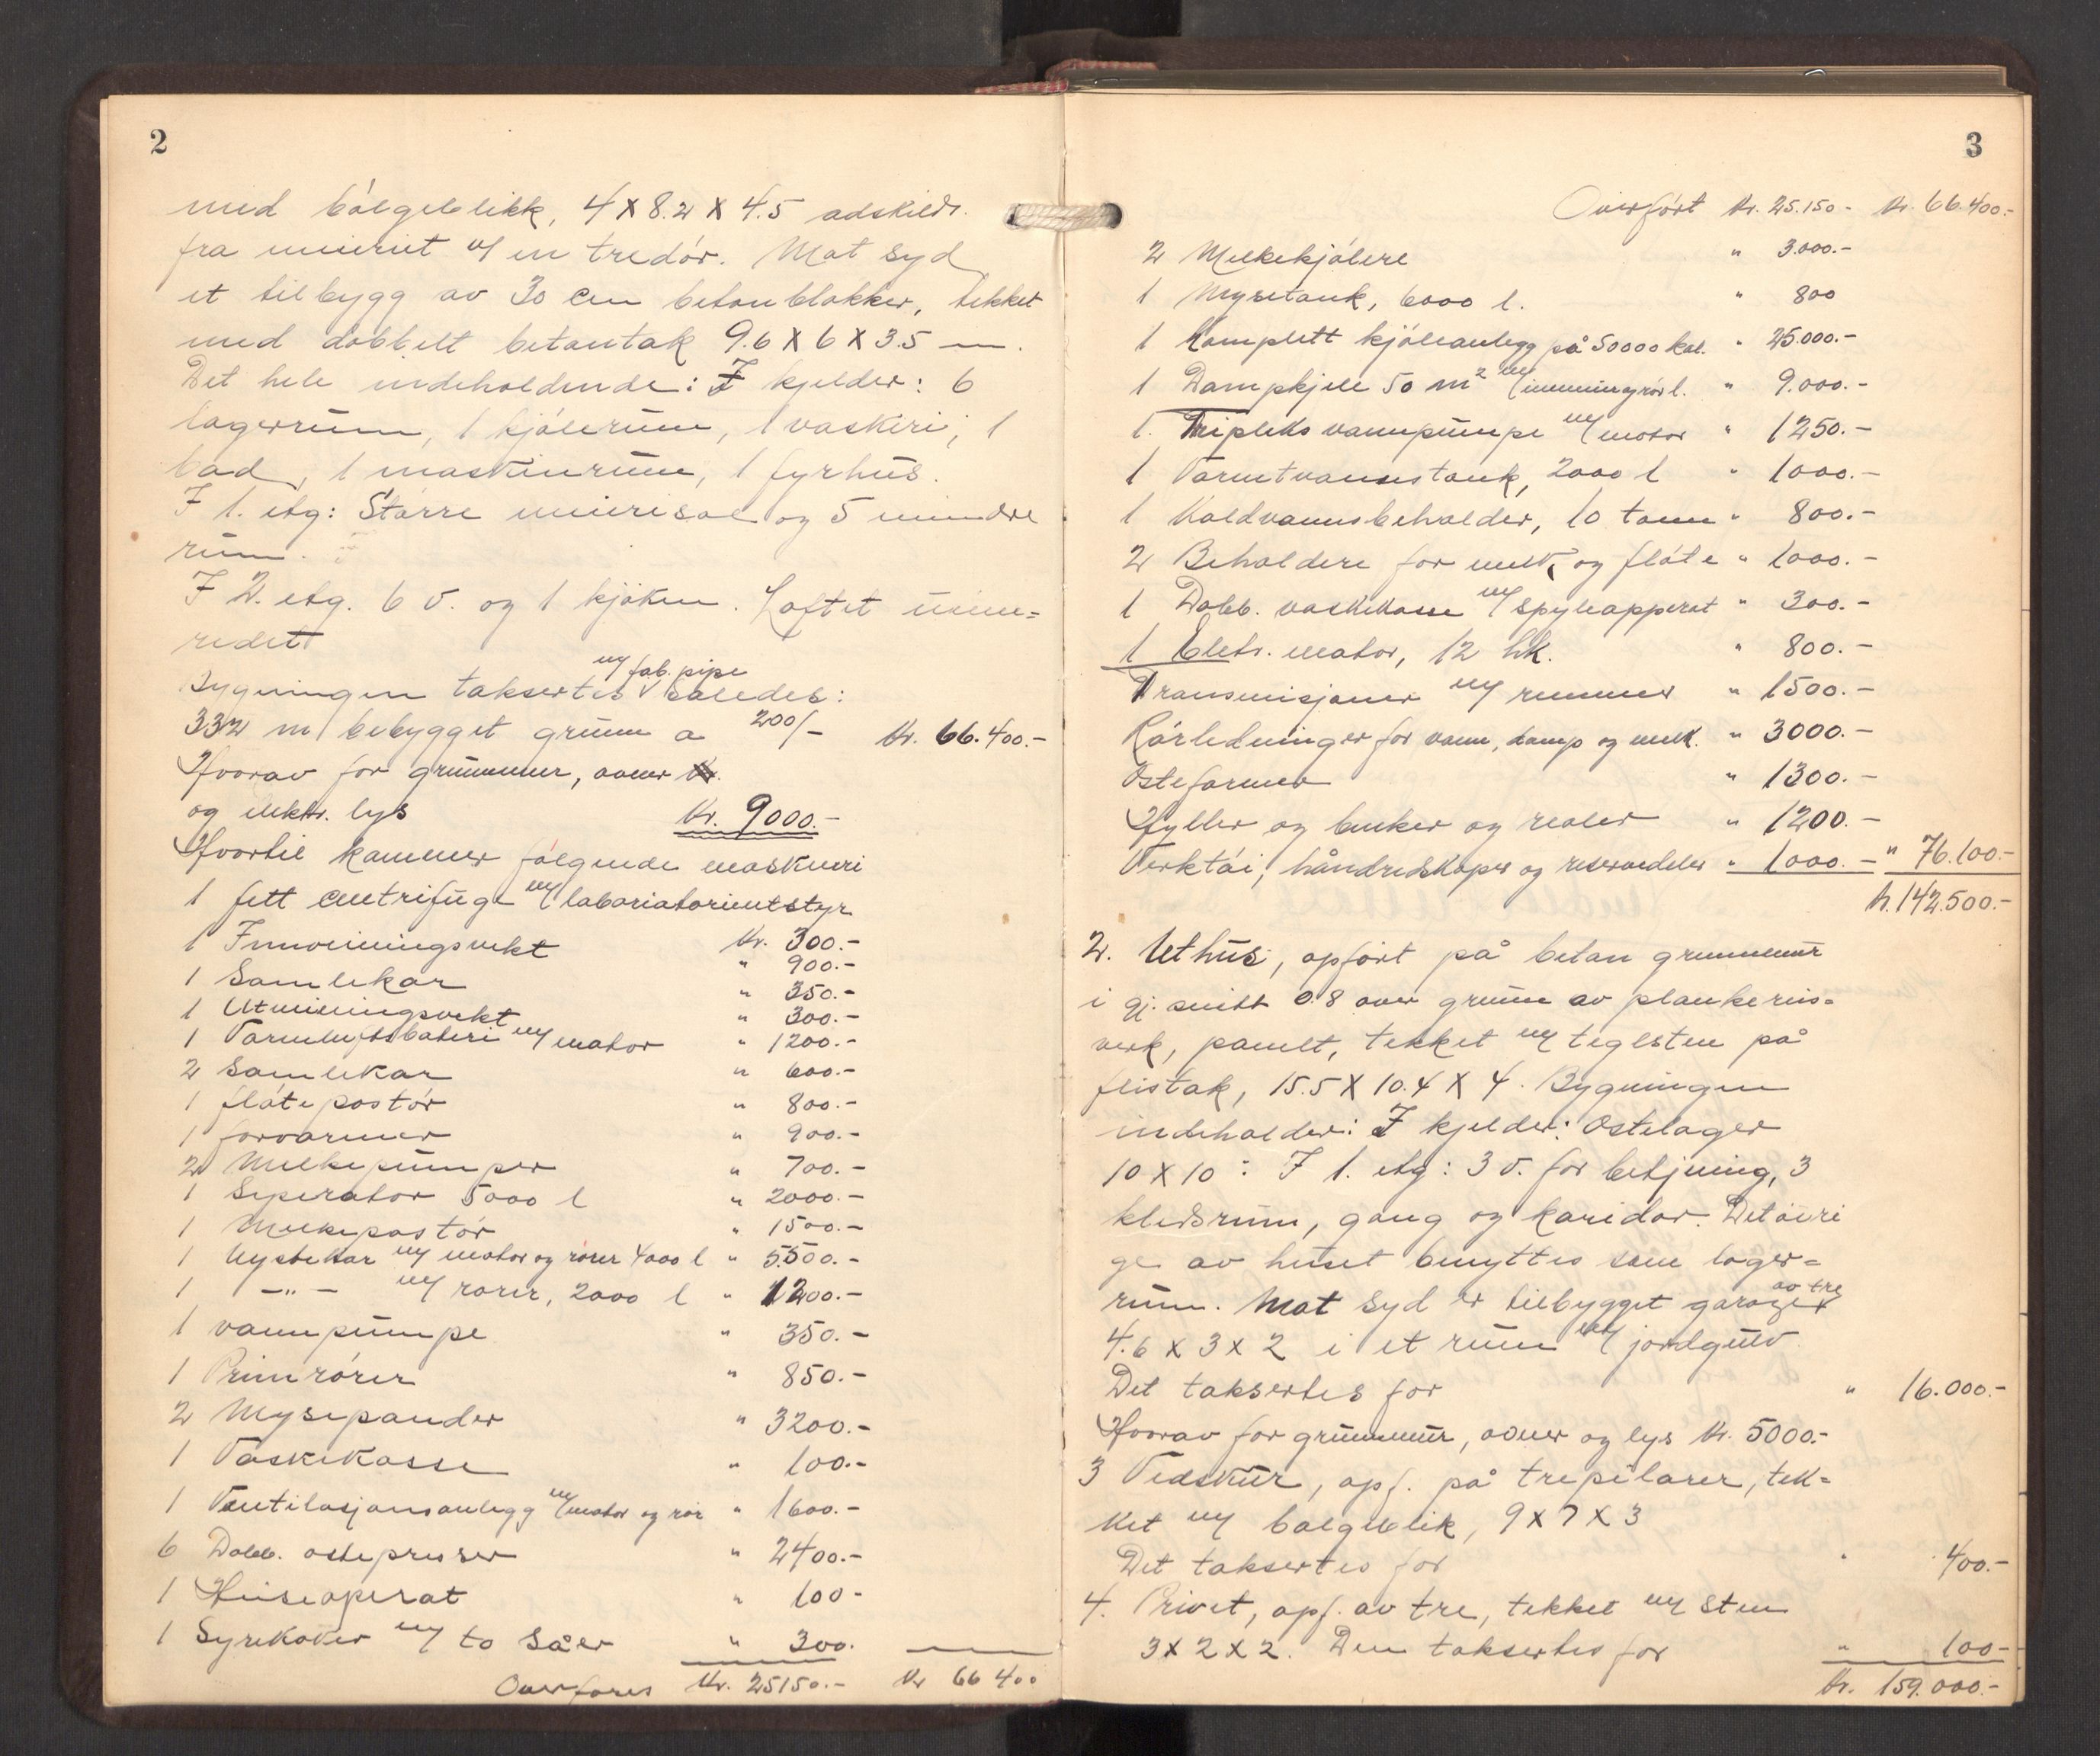 2
med bólgeblikk, 4 X 8.2 X 4.5 adskildt.
fra meieriet m/ en tredór. Mot syd
et tilbygg av 30 cm betonblokker, tekket
med dobbelt betontak 9.6 X 6 X 3.5 m.
Det hele indeholdende: I kjelder: 6
lagerrum, 1 kjólerum, 1 vaskeri, 1
bad, 1 maskinrum, 1 fyrhus.
I 1. etg: Större meierisal og 5 mindre
rum.
I 2. etg. 6 v. og 1 kjøken. Loftet uinn=
redet
m/ fab. pipe
Bygningen taksertes V således:
332 m/ bebygget grunn a 200/- kr. 66.400.-
Hvorav for grunnmur, ovner
og elektr. lys kr. 9000.-
Hvortil kommer fölgende maskineri
1 fett centrifuge m/ laboriatorieutstyr
kr. 300.-
1 Innveiningsvekt " 900.-
1 Samlekar " 350.-
1 Utveiningsvekt " 300.-
1 Varmluftsbateri m/ motor " 1200.-
2 Samlekar " 600.-
1 flótepostór " 800.-
1 forvarmer " 900.-
2 Melkepumper " 700.-
1 Seperator 5000 l " 2000.-
1 Melkepastór " 1500.-
1 Ystekar m/ motor og rörer 4000 l " 5500.-
1 -"- m/ rörer, 2000 l " 1200.-
1 vannpumpe " 350.-
1 Primrórer " 850.-
2 Mysepander " 3200.-
1 Vaskekasse " 100.-
1 Ventilasjonsanlegg m/motor og rór " 1600.-
6 Dobb. ostepresser " 2400.-
1 Heiseaperat " 100-
1 Syrekoker m/ to såer " 300.
Overföres kr. 25150.- kr 66 400
3
Overfórt kr. 25.150- kr. 66.400.-
2 Melkekjólere " 3.000.-
1 Mysetank, 6000 l. " 800
1 Komplett kjóleanlegg på 50000 kal. " 25.000.-
1 Dampkjele 50 m2 m/ innmuringrór l. " 9.000.-
1. Tripleks vannpumpe m/motor " 1250.-
1 Varmtvannstank, 2000 l " 1000.-
1 Koldvannsbeholder, 10 tonn " 800.-
2 Beholdere for melk og flóte " 1000.-
1 Dobb. vaskekasse m/ spyleapperat " 300.-
1 Elektr. motor, 12 hk. " 800.-
Transmisjoner m/ remmer " 1500.-
Rórledninger for vann, damp og melk. " 3000.-
Osteformer " 1300.-
Hyller og benker og reoler " 1200.-
Verktói, håndredskaper og reservedeler " 1000.- " 76.100.-
kr. 142.500.-
2. Uthus, opfórt på beton grunnmur
i gj. snitt 0.8 over grunn av plankereis=
verk, panelt, tekket m/ teglsten på
flistak, 15.5 X 10.4 X 4. Bygningen
indeholder: I kjelder: Ostelager
10 X 10: I 1. etg: 3 v. for betjening, 3
kledsrum, gang og koridor. Det óvri
ge av huset benyttes som lager=
rum. Mot syd er tilbygget garage av tre
4.6 x 3 x 2 i et rum m/ jordgulv
Det taksertes for " 16.000.-
Hvorav for grunnmur, ovner og lys kr. 5000.-
3 Vedskur, opf. på trepilarer, tek=
ket m/ bølgeblik, 9 X 7 X 3
Det taksertes for " 400.-
4. Privet, opf. av tre, tekket m/ sten
3 X 2 X 2. Den taksertes for " 100-
kr. 159.000.-